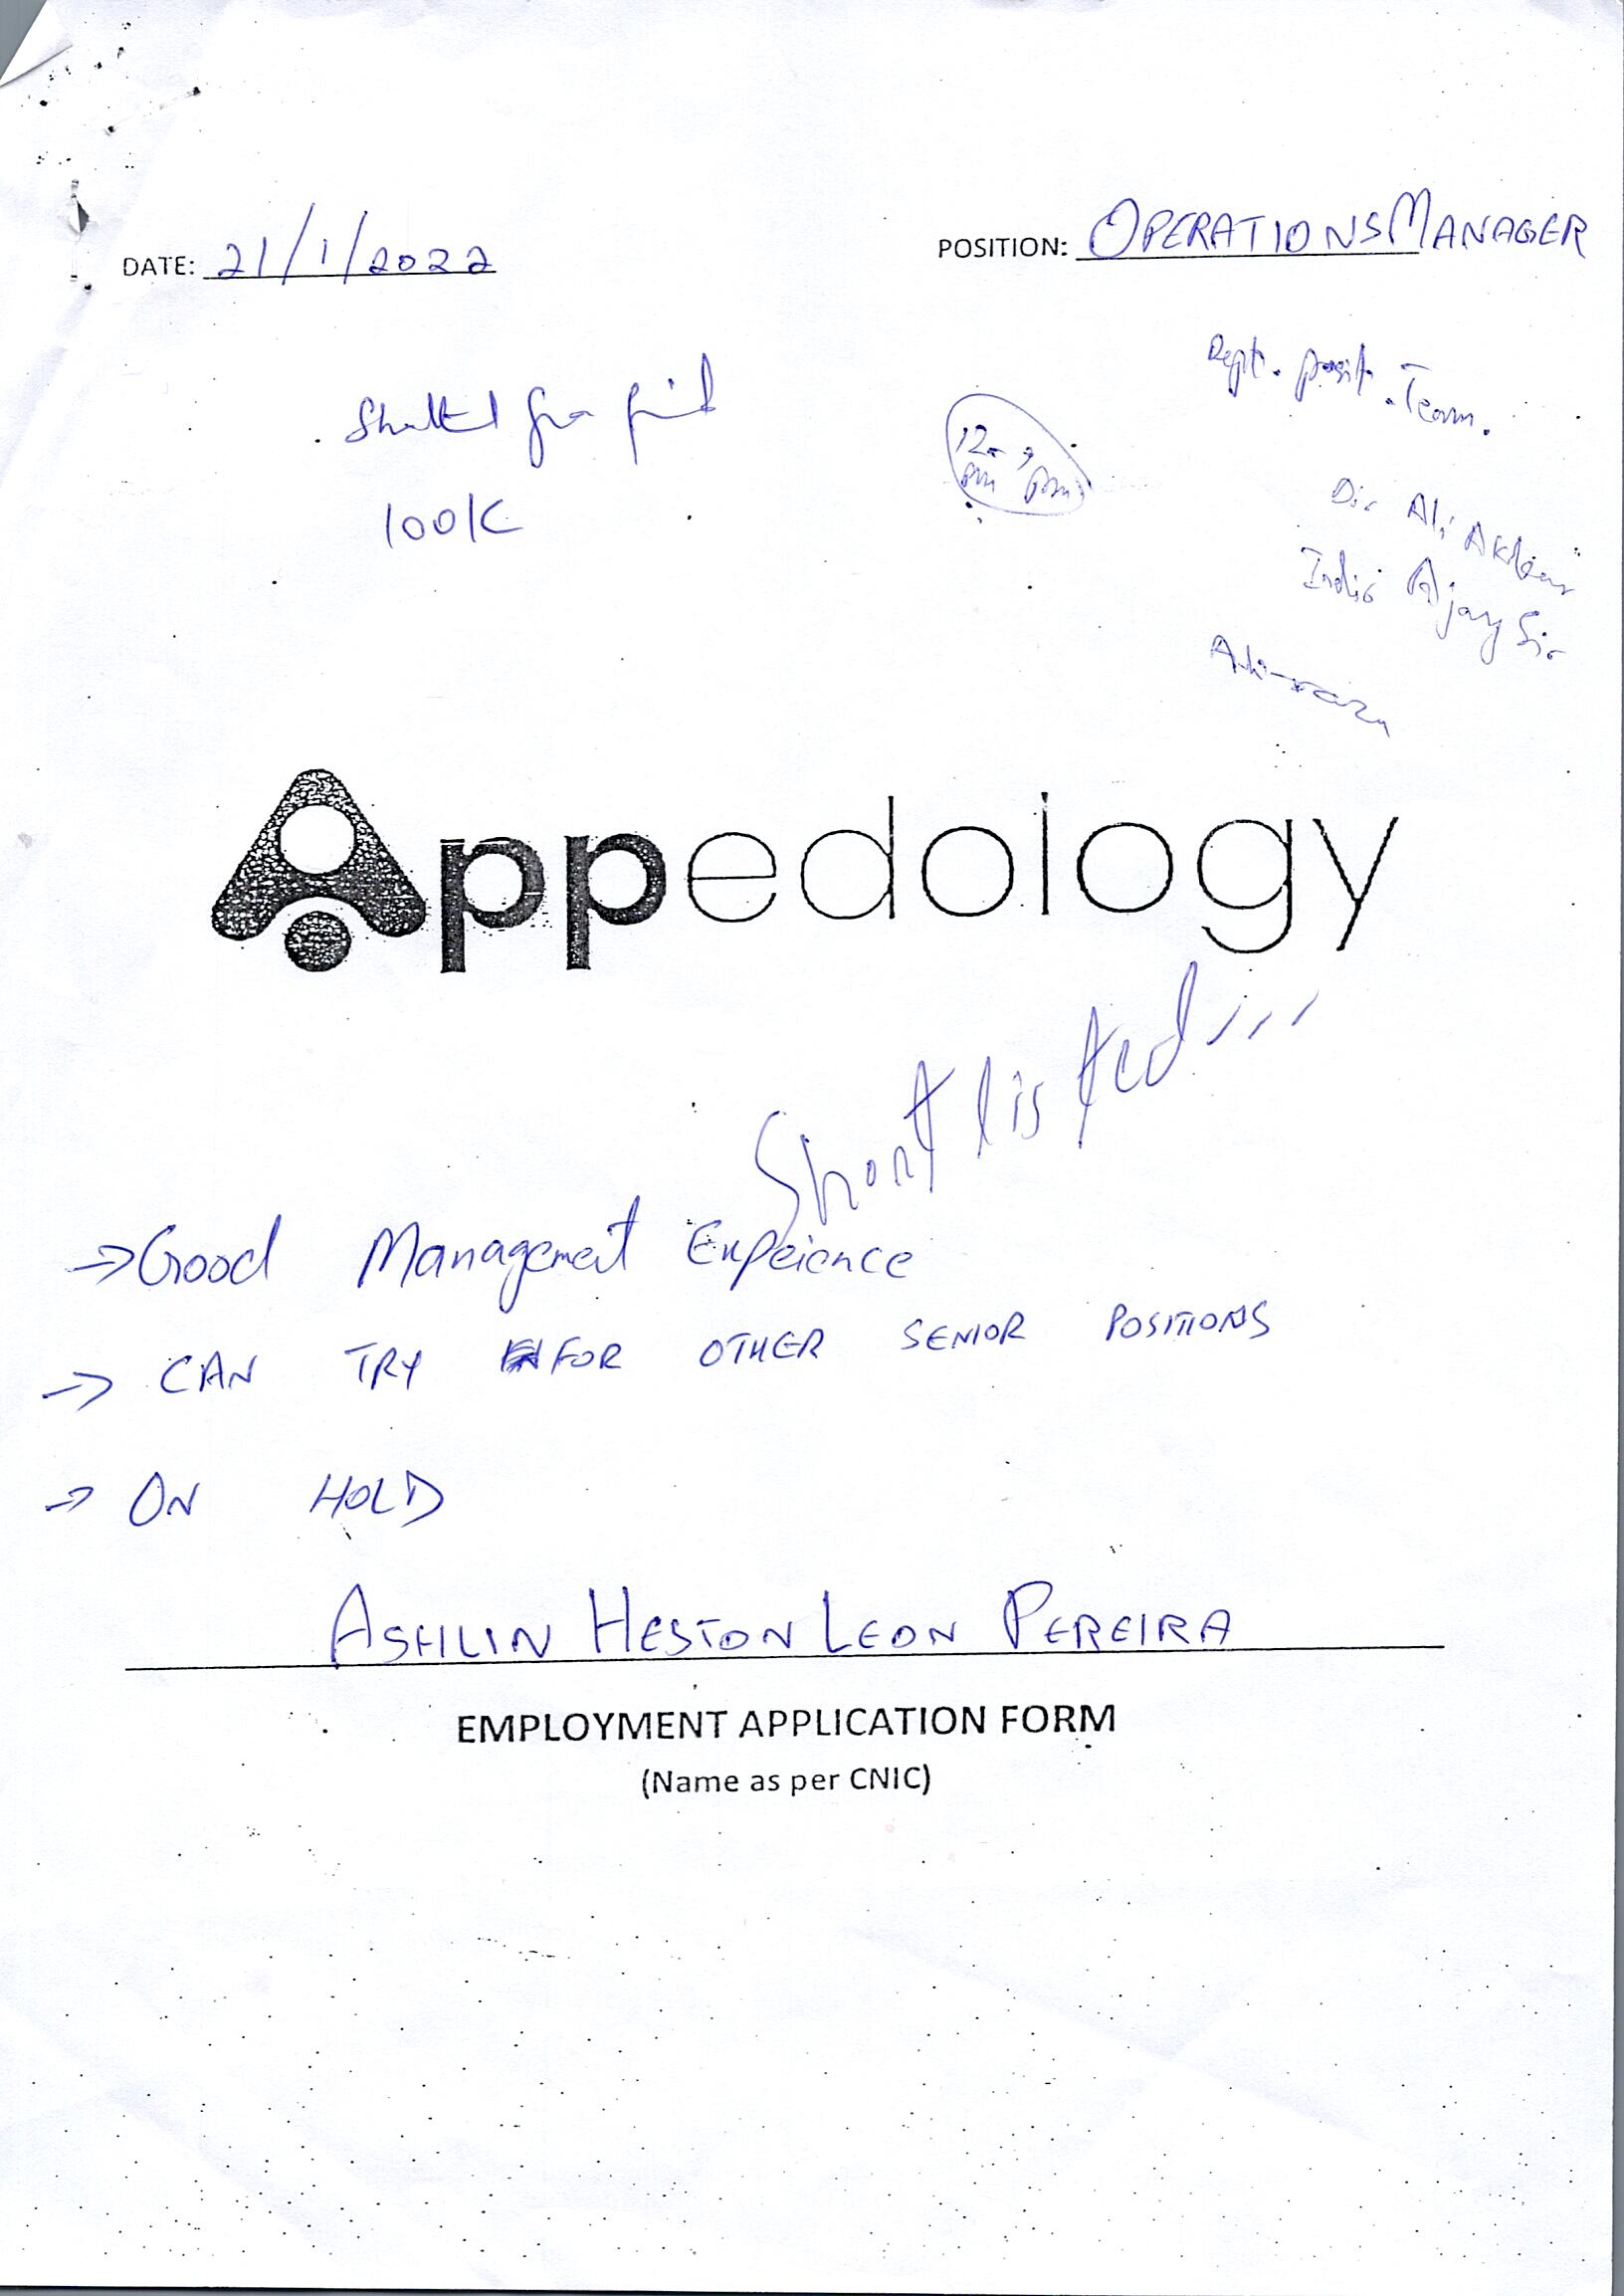 DATE: 21/1/2022
POSITION: OPERATIONS MANAGER
Dept. posit. Team.
100K
Dir Ali
Ajay Sir
Appedology
Shortlisted
→ Good Management Expeience
→ CAN TRY FOR OTHER SENIOR POSITIONS
→ ON HOLD
ASHLIN HESTON LEON PEREIRA
EMPLOYMENT APPLICATION FORM
(Name as per CNIC)